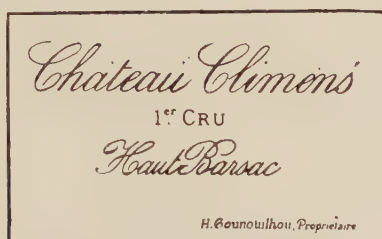 Château Climens
1er CRU
Haut Barsac
H. Gounouilhou, Propriétaire